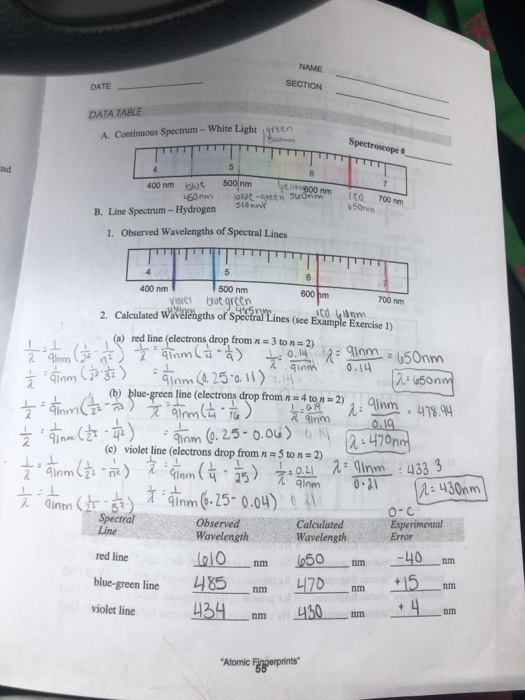 NAME
DATE
SECTION
DATA TABLE
A. Continuous Spectrum – White Light green
540nm
Spectroscope #
4 5 6 7
400 nm blue 500 nm yellow 600 nm red 700 nm
450nm blue-green 650nm
510nm
nd
B. Line Spectrum – Hydrogen
1. Observed Wavelengths of Spectral Lines
4 5 6 7
400 nm 500 nm 600 nm 700 nm
violet blue green red 610nm
485nm
2. Calculated Wavelengths of Spectral Lines (see Example Exercise 1)
(a) red line (electrons drop from n = 3 to n = 2)
1/λ = 1/91nm (1/2² - 1/n²) 1/λ = 1/91nm (1/4 - 1/9) 1/λ = 0.14/91nm λ = 91nm/0.14 = 650nm
1/λ = 1/91nm (1/2² - 1/3²) = 1/91nm (0.25-0.11) 0.14 λ = 650nm
(b) blue-green line (electrons drop from n = 4 to n = 2)
1/λ = 1/91nm (1/2² - 1/n²) 1/λ = 1/91nm (1/4 - 1/16) 1/λ = 0.19/91nm λ = 91nm/0.19 = 478.94
1/λ = 1/91nm (1/2² - 1/4²) = 1/91nm (0.25-0.06) λ = 470nm
(c) violet line (electrons drop from n = 5 to n = 2)
1/λ = 1/91nm (1/2² - 1/n²) 1/λ = 1/91nm (1/4 - 1/25) 1/λ = 0.21/91nm λ = 91nm/0.21 = 433.3
1/λ = 1/91nm (1/2² - 1/5²) 1/λ = 1/91nm (0.25-0.04) λ = 430nm
O-C
Spectral Line Observed Wavelength Calculated Wavelength Experimental Error
red line 610 nm 650 nm -40 nm
blue-green line 485 nm 470 nm +15 nm
violet line 434 nm 430 nm +4 nm
"Atomic Fingerprints"
55